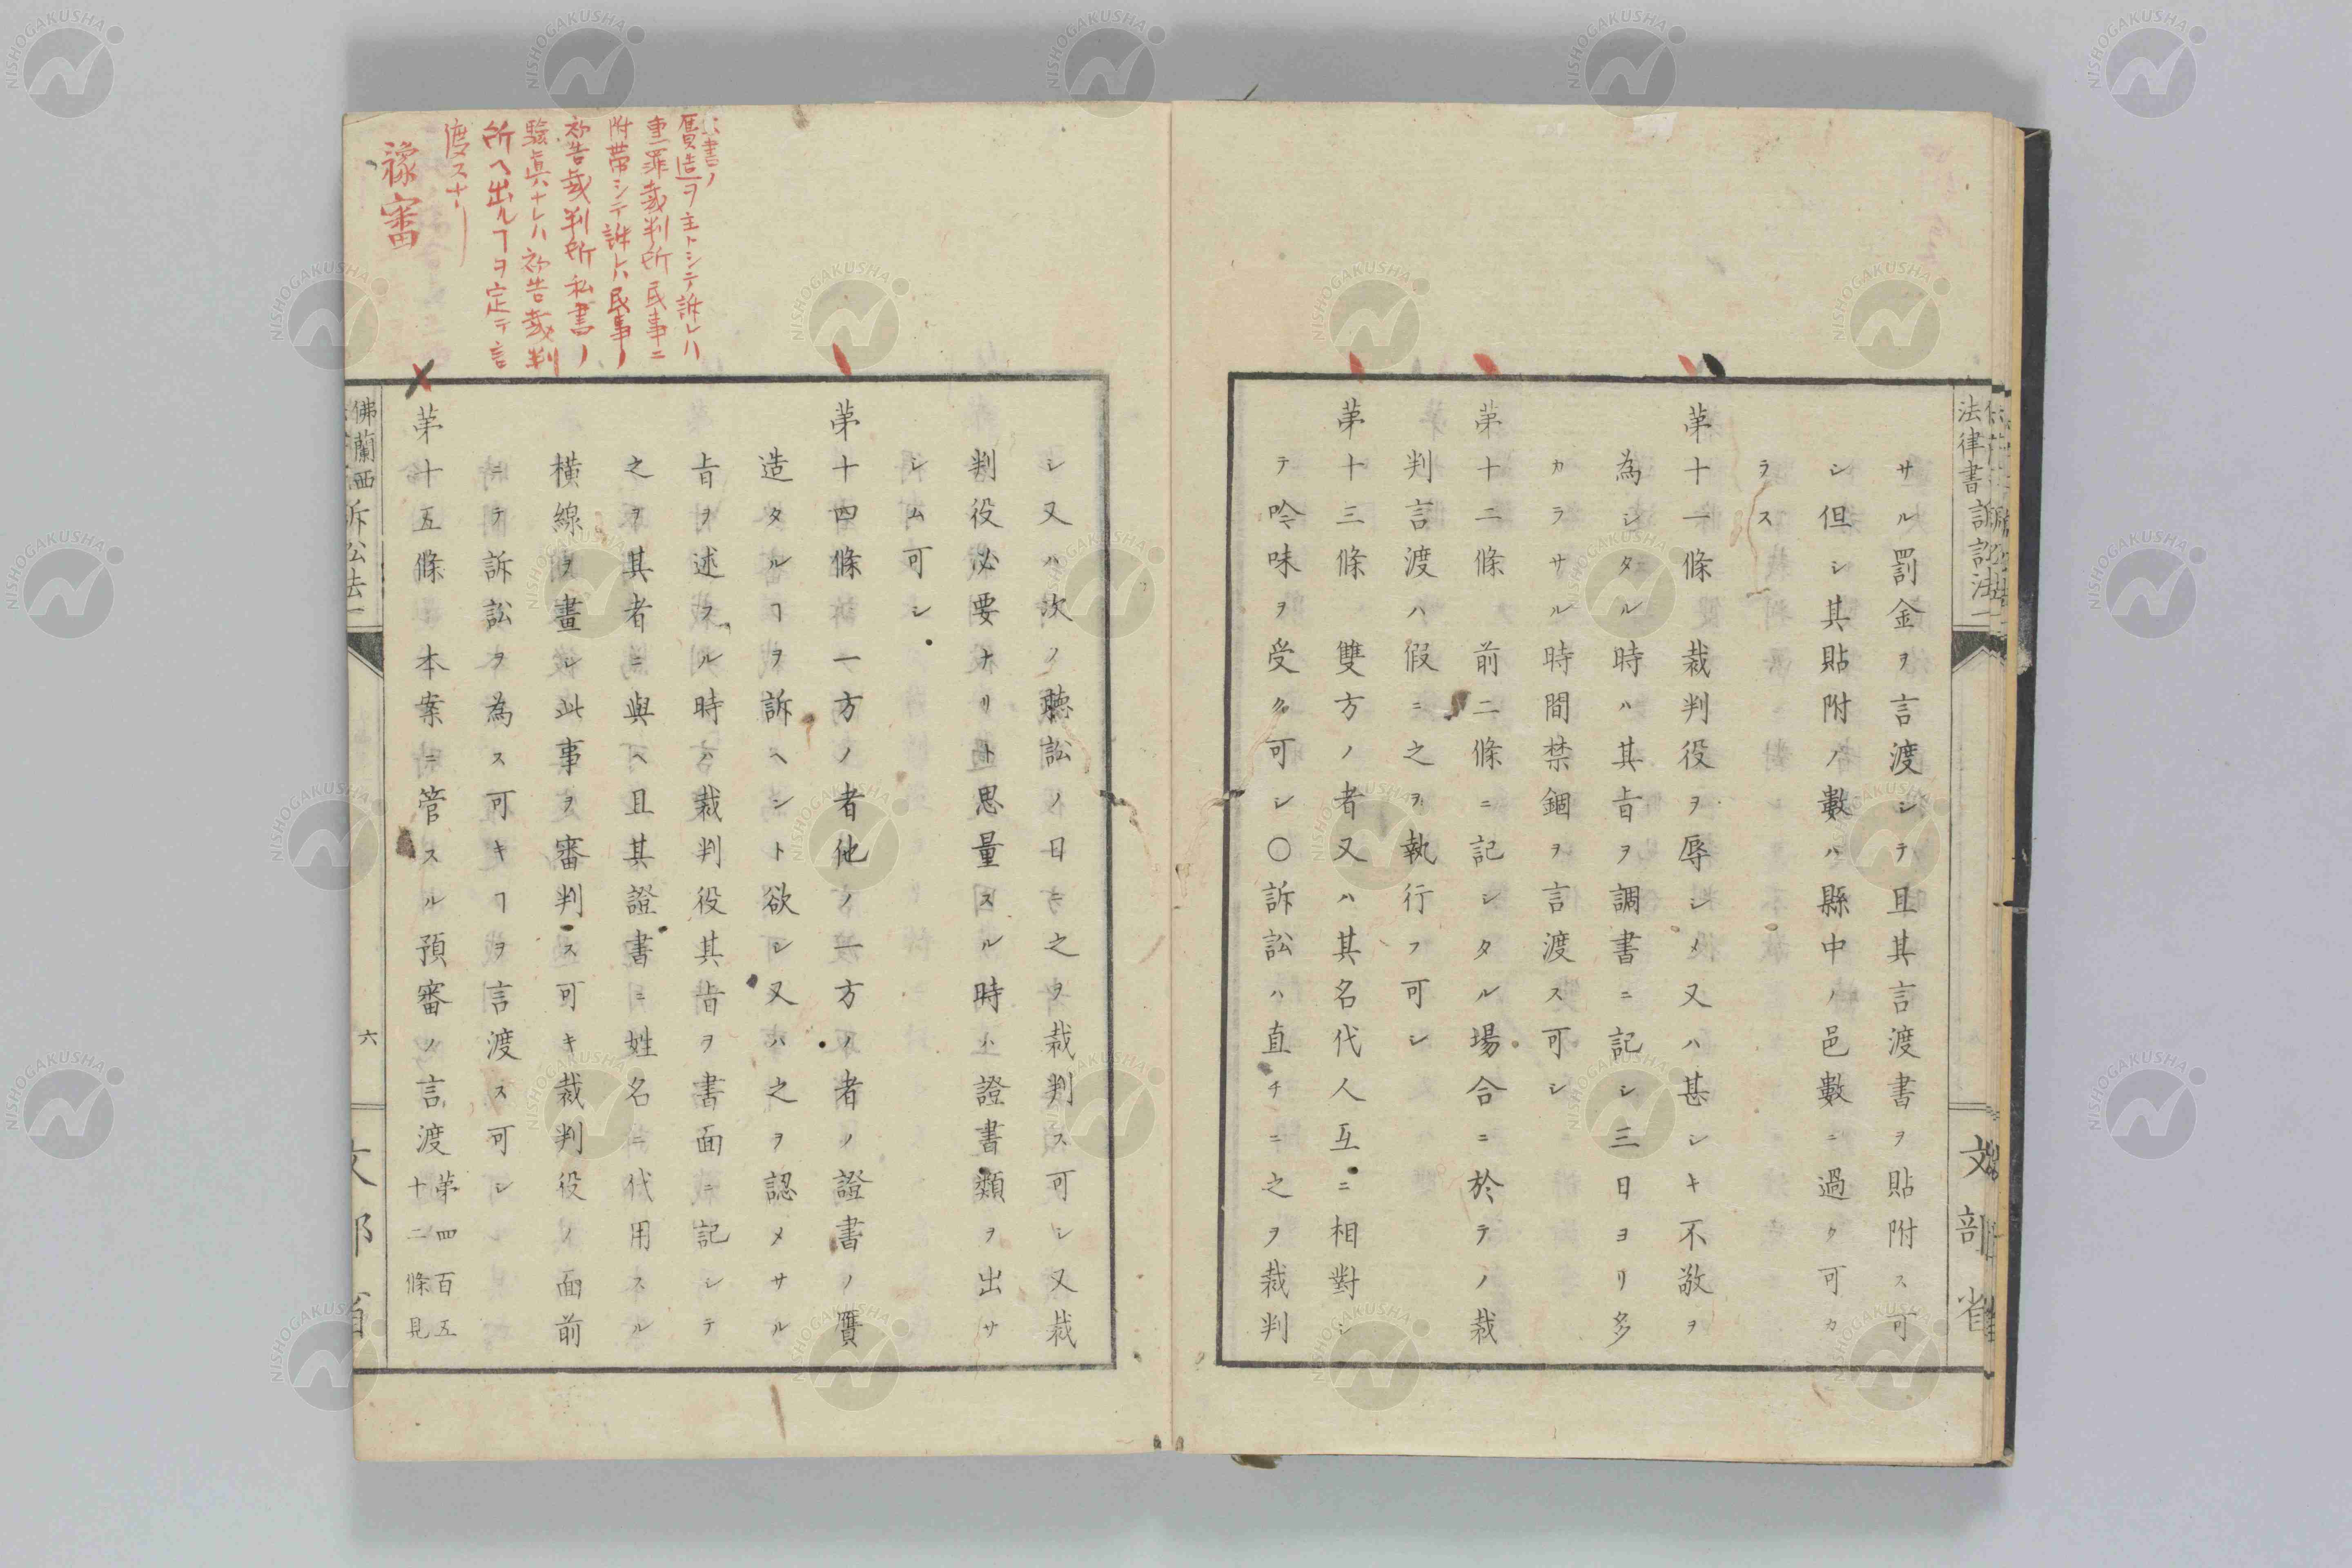 サル罰金ヲ言渡シテ且其言渡書ヲ貼附ス可
シ但シ其貼附ノ數ハ縣中ノ邑數ニ過ク可カ
ラス
第十一條　裁判役ヲ辱シメ又ハ甚シキ不敬ヲ
為シタル時ハ其旨ヲ調書ニ記シ三日ヨリ多
カラサル時間禁錮ヲ言渡ス可シ
第十二條　前二條ニ記シタル場合ニ於テノ裁
判言渡ハ假ニ之ヲ執行フ可シ
第十三條　雙方ノ者又ハ其名代人互ニ相對シ
テ吟味ヲ受ク可シ〇訴訟ハ直チニ之ヲ裁判
シ又ハ次ノ聽訟ノ日ニ之ヲ裁判ス可シ又裁
判役必要ナリト思量スル時ハ證書類ヲ出サ
シム可シ
第十四條　一方ノ者他ノ一方ノ者ノ證書ノ贋
造タルヿヲ訴ヘント欲シ又ハ之ヲ認メサル
旨ヲ述フル時ハ裁判役其旨ヲ書面ニ記シテ
之ヲ其者ニ與ヘ且其證書ニ姓名ニ代用スル
橫線ヲ畫シ此事ヲ審判ス可キ裁判役ノ面前
ニテ訴訟ヲ為ス可キヿヲ言渡ス可シ
第十五條　本案ニ管スル預審ノ言渡第四百五十二條見
法律書訴訟法一
文部省
佛蘭西訴訟法一
六
文部省
書ノ
贋造ヲ主トシテ訴レハ
重罪裁判所民事ニ
附帯シテ訴レハ民事ノ
初告裁判所私書ノ
驗眞ナレハ初告裁判
所ヘ出ルヿヲ定テ言
渡スナリ
豫審
NISHOGAKUSHA